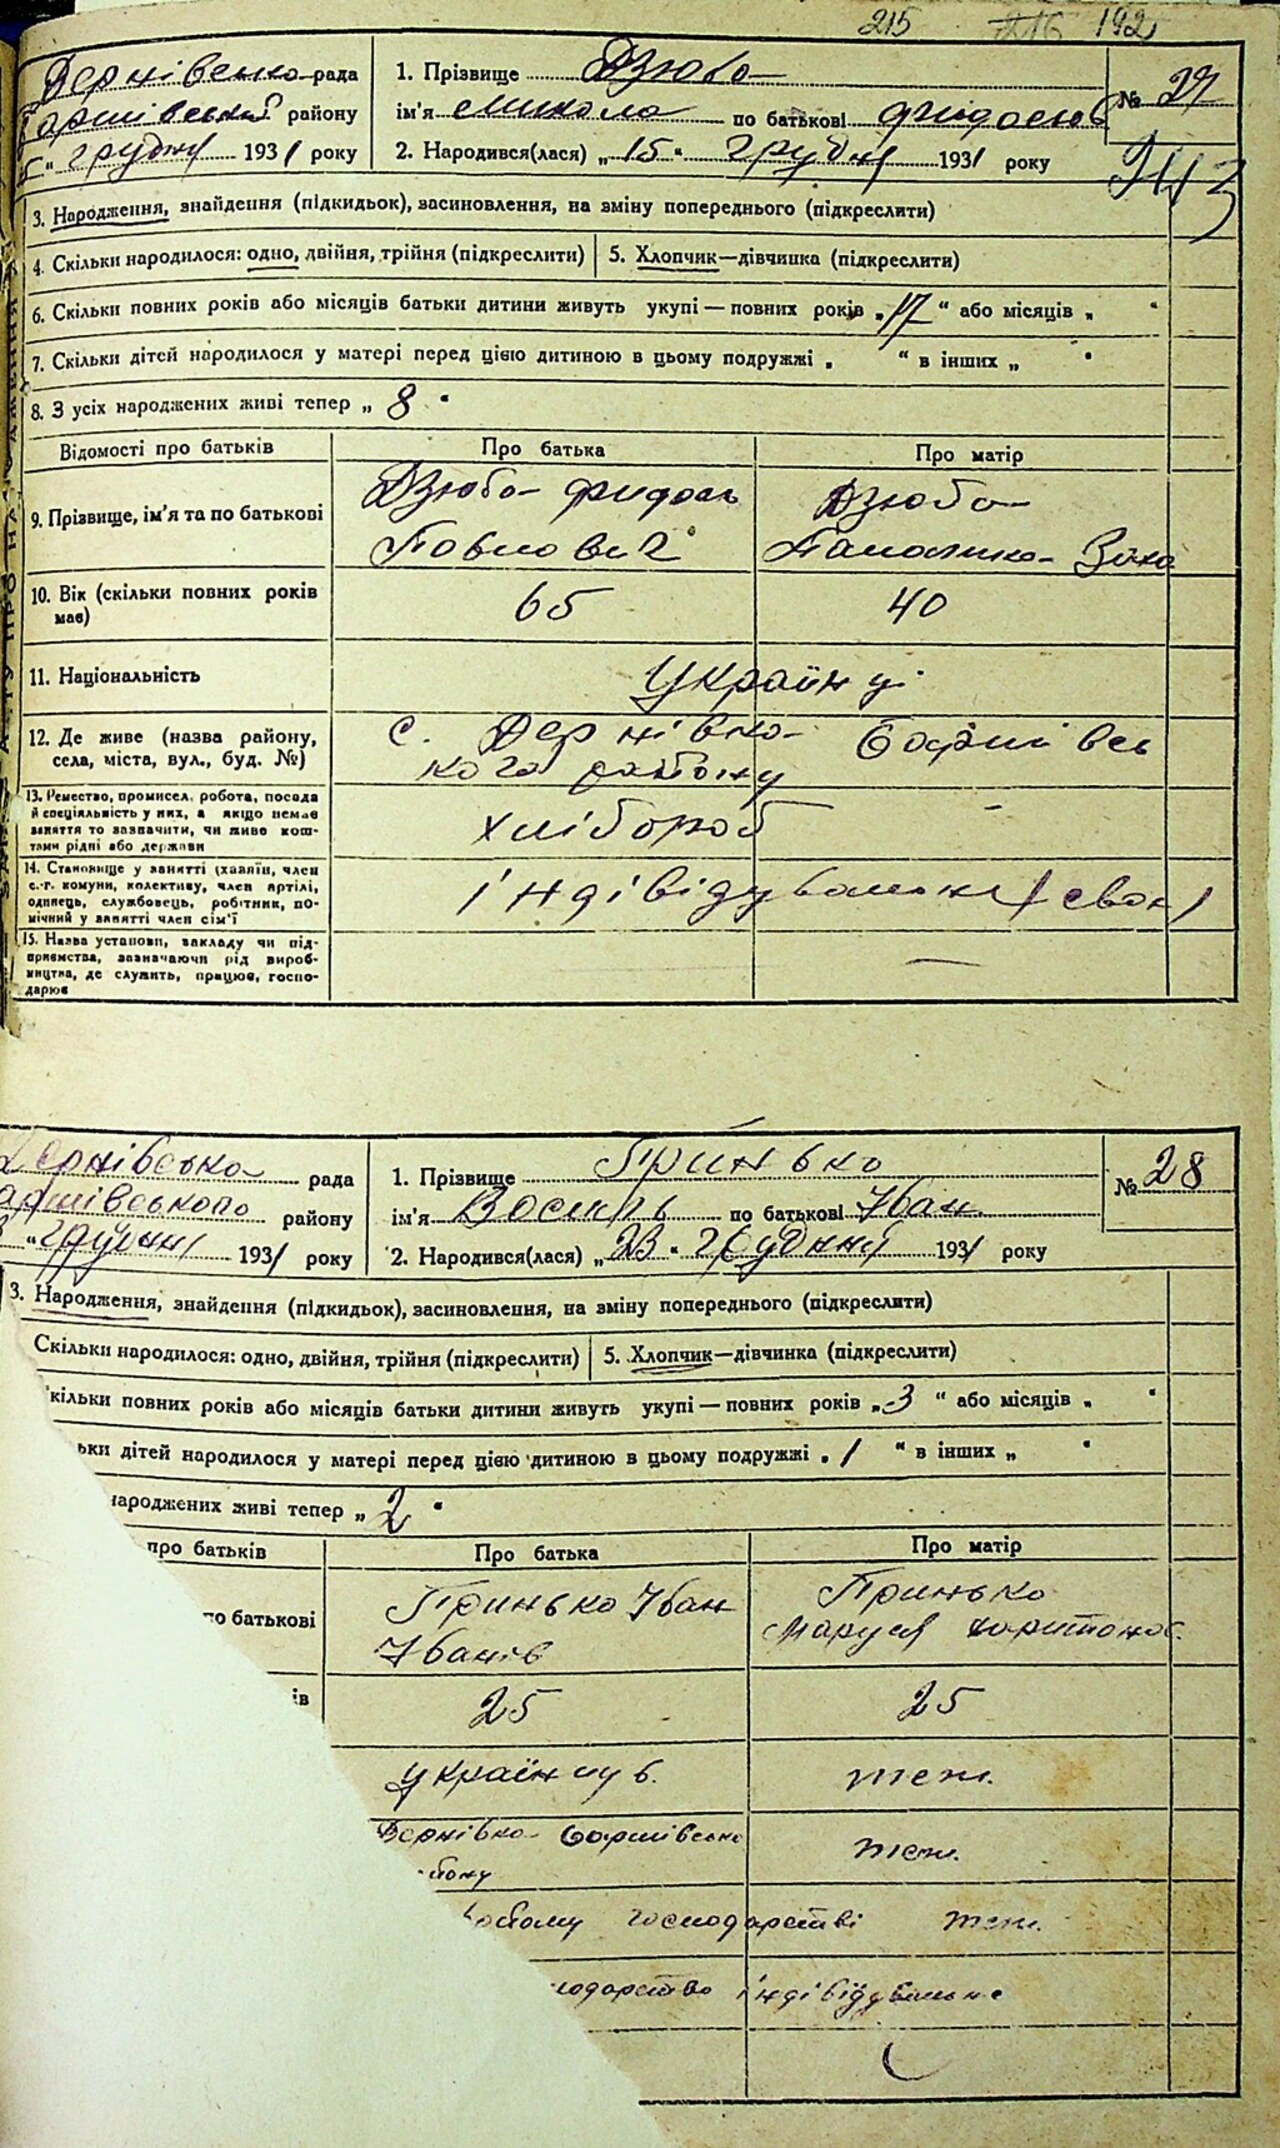 215 192
Дернівська рада
району
грудня 1931 року
1. Прізвище Дзюба
ім'я Микола по батькові Фидосієв
2. Народився(лася) „15“ грудня 1931 року
№ 27
3. Народження, знайдення (підкидьок), засиновлення, на зміну попереднього (підкреслити)
4. Скільки народилося: одно, двійня, трійня (підкреслити) 5. Хлопчик—дівчинка (підкреслити)
6. Скільки повних років або місяців батьки дитини живуть укупі — повних років „17“ або місяців „ “
7. Скільки дітей народилося у матері перед цією дитиною в цьому подружжі „ “ в інших „ “
8. З усіх народжених живі тепер „8“
Відомості про батьків Про батька Про матір
9. Прізвище, ім'я та по батькові
Дзюба Дзюба
Павлович
10. Вік (скільки повних років має) 65 40
11. Національність Українці
12. Де живе (назва району, села, міста, вул., буд. №)
с. Дернівка Баришівсь
кого району
13. Ремество, промисел, робота, посада й спеціальність у них, а якщо немає заняття то зазначити, чи живе коштами рідні або держави
хлібороб -
14. Становище у занятті (хазяїн, член с.-г. комуни, колективу, член артілі, одинець, службовець, робітник, помічний у занятті член сім'ї
15. Назва установи, закладу чи підприємства, зазначаючи рід виробництва, де служить, працює, господарює
—
Дернівська рада
аришівського району
грудня 1931 року
1. Прізвище Гринько
ім'я Василь по батькові Іван.
2. Народився(лася) „23“ грудня 1931 року
№ 28
3. Народження, знайдення (підкидьок), засиновлення, на зміну попереднього (підкреслити)
Скільки народилося: одно, двійня, трійня (підкреслити) 5. Хлопчик—дівчинка (підкреслити)
кільки повних років або місяців батьки дитини живуть укупі — повних років „3“ або місяців „ “
ьки дітей народилося у матері перед цією дитиною в цьому подружжі „1“ в інших „ “
народжених живі тепер „2“
про батьків Про батька Про матір
по батькові
Гринько Іван Гринько
Іванів Маруся Харитонов.
ів 25 25
українців. теж.
Дернівка Баришівсько теж.
йону
господарстві теж.
подарство індівідуальне